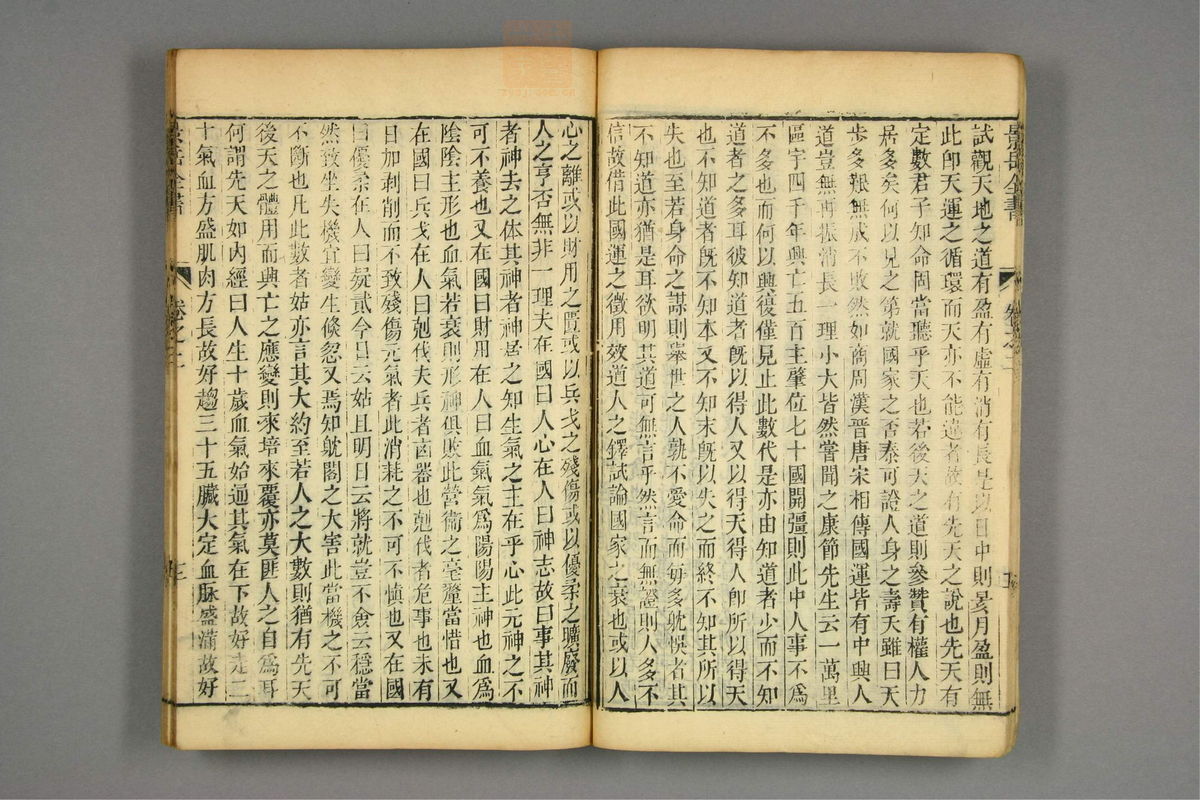 景岳全書
卷之二
試觀天地之道有盈有虛有消有長是以日中則昃月盈則無
此卽天運之循環而天亦不能違者故有先天之說也先天有
定數君子知命固當聽乎天也若後天之道則參贊有權人力
居多矣何以見之第就國家之否泰可證人身之壽夭雖曰天
步多艱無成不敗然如商周漢晉唐宋相傳國運皆有中興人
道豈無再振消長一理小大皆然嘗聞之康節先生云一萬里
區宇四千年興亡五百主肇位七十國開彊則此中人事不爲
不多也而何以興復僅見止此數代是亦由知道者少而不知
道者之多耳彼知道者旣以得人又以得天得人卽所以得天
也不知道者旣不知本又不知末旣以失之而終不知其所以
失也至若身命之謀則舉世之人孰不愛命而每多躭悞者其
不知道亦猶是耳欲明其道可無言乎然言而無證則人多不
信故借此國運之徵用效道人之鐸試論國家之衰也或以人
心之離或以財用之匱或以兵戈之殘傷或以優柔之曠廢而
人之亨否無非一理夫在國曰人心在人曰神志故曰事其神
者神去之休其神者神居之知生氣之主在乎心此元神之不
可不養也又在國曰財用在人曰血氣氣爲陽陽主神也血爲
陰陰主形也血氣若衰則形神俱敗此營衞之毫釐當惜也又
在國曰兵戈在人曰剋伐夫兵者凶器也剋伐者危事也未有
日加剥削而不致殘傷元氣者此消耗之不可不慎也又在國
曰優柔在人曰疑貳今日云姑且明日云將就豈不僉云穩當
然致坐失機宜變生倏忽又焉知躭閣之大害此當機之不可
不斷也凡此數者姑亦言其大約至若人之大數則猶有先天
後天之體用而興亡之應變則來培來覆亦莫匪人之自爲耳
何謂先天如內經曰人生十歲血氣始通其氣在下故好走二
十氣血方盛肌肉方長故好趨三十五臟大定血脉盛滿故好
景岳全書
卷之二